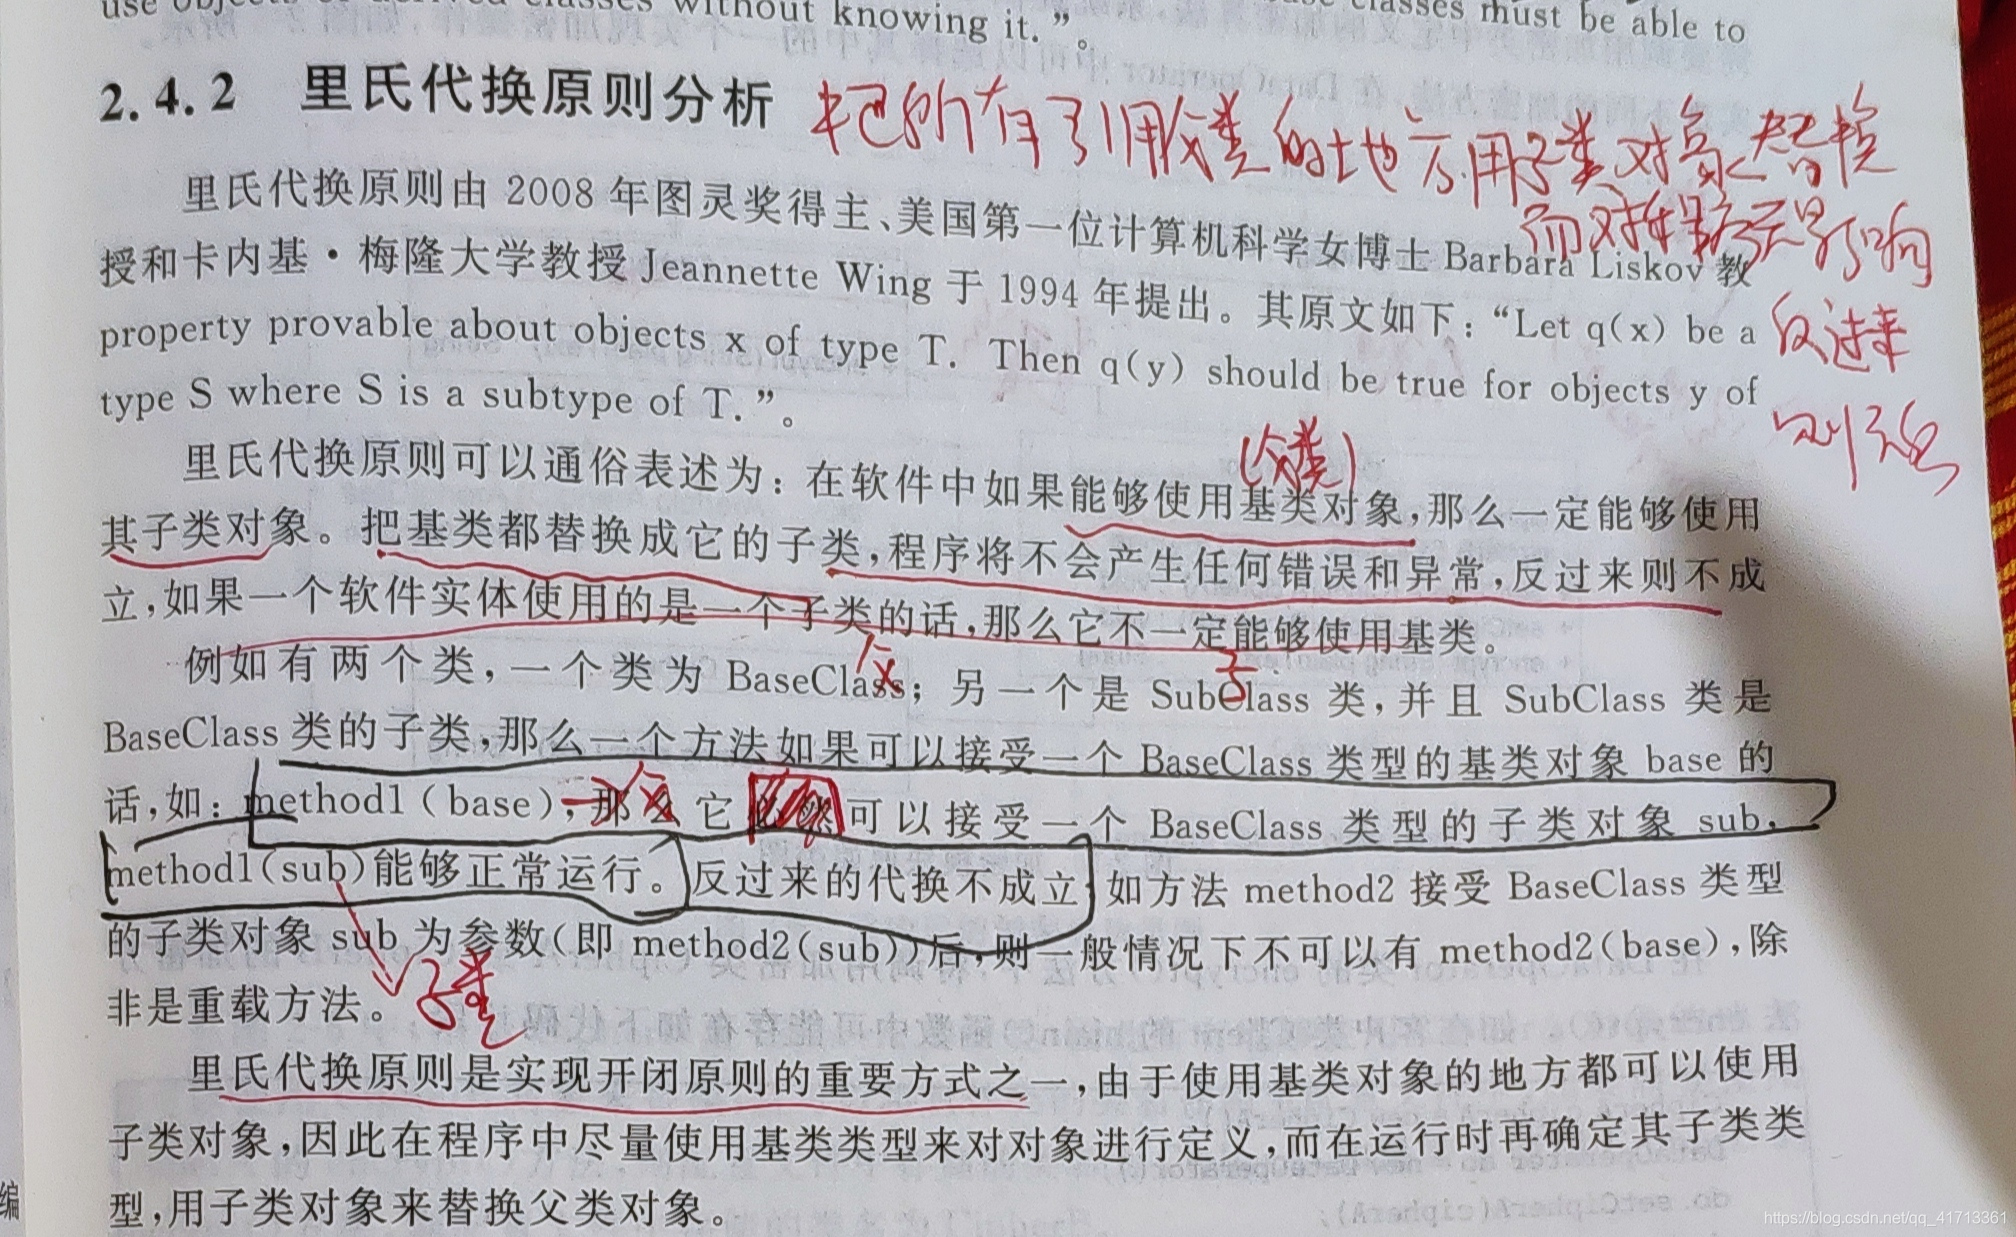 use objects of derived classes without knowing it.”。
classes must be able to
2.4.2 里氏代换原则分析
把所有引用父类的地方用子类对象替换
而对程序无影响
反过来
则不
里氏代换原则由 2008 年图灵奖得主、美国第一位计算机科学女博士 Barbara Liskov 教
授和卡内基·梅隆大学教授 Jeannette Wing 于 1994 年提出。其原文如下：“Let q(x) be a
property provable about objects x of type T. Then q(y) should be true for objects y of
type S where S is a subtype of T.”。
(父类)
里氏代换原则可以通俗表述为：在软件中如果能够使用基类对象，那么一定能够使用
其子类对象。把基类都替换成它的子类，程序将不会产生任何错误和异常，反过来则不成
立，如果一个软件实体使用的是一个子类的话，那么它不一定能够使用基类。
例如有两个类，一个类为 BaseClass；另一个是 SubClass 类，并且 SubClass 类是
父
子
BaseClass 类的子类，那么一个方法如果可以接受一个 BaseClass 类型的基类对象 base 的
话，如：method1（base），那么它必然可以接受一个 BaseClass 类型的子类对象 sub，
父
method1(sub)能够正常运行。反过来的代换不成立，如方法 method2 接受 BaseClass 类型
的子类对象 sub 为参数(即 method2(sub))后，则一般情况下不可以有 method2(base)，除
非是重载方法。
子类
里氏代换原则是实现开闭原则的重要方式之一，由于使用基类对象的地方都可以使用
子类对象，因此在程序中尽量使用基类类型来对对象进行定义，而在运行时再确定其子类类
型，用子类对象来替换父类对象。
编
https://blog.csdn.net/qq_41713361